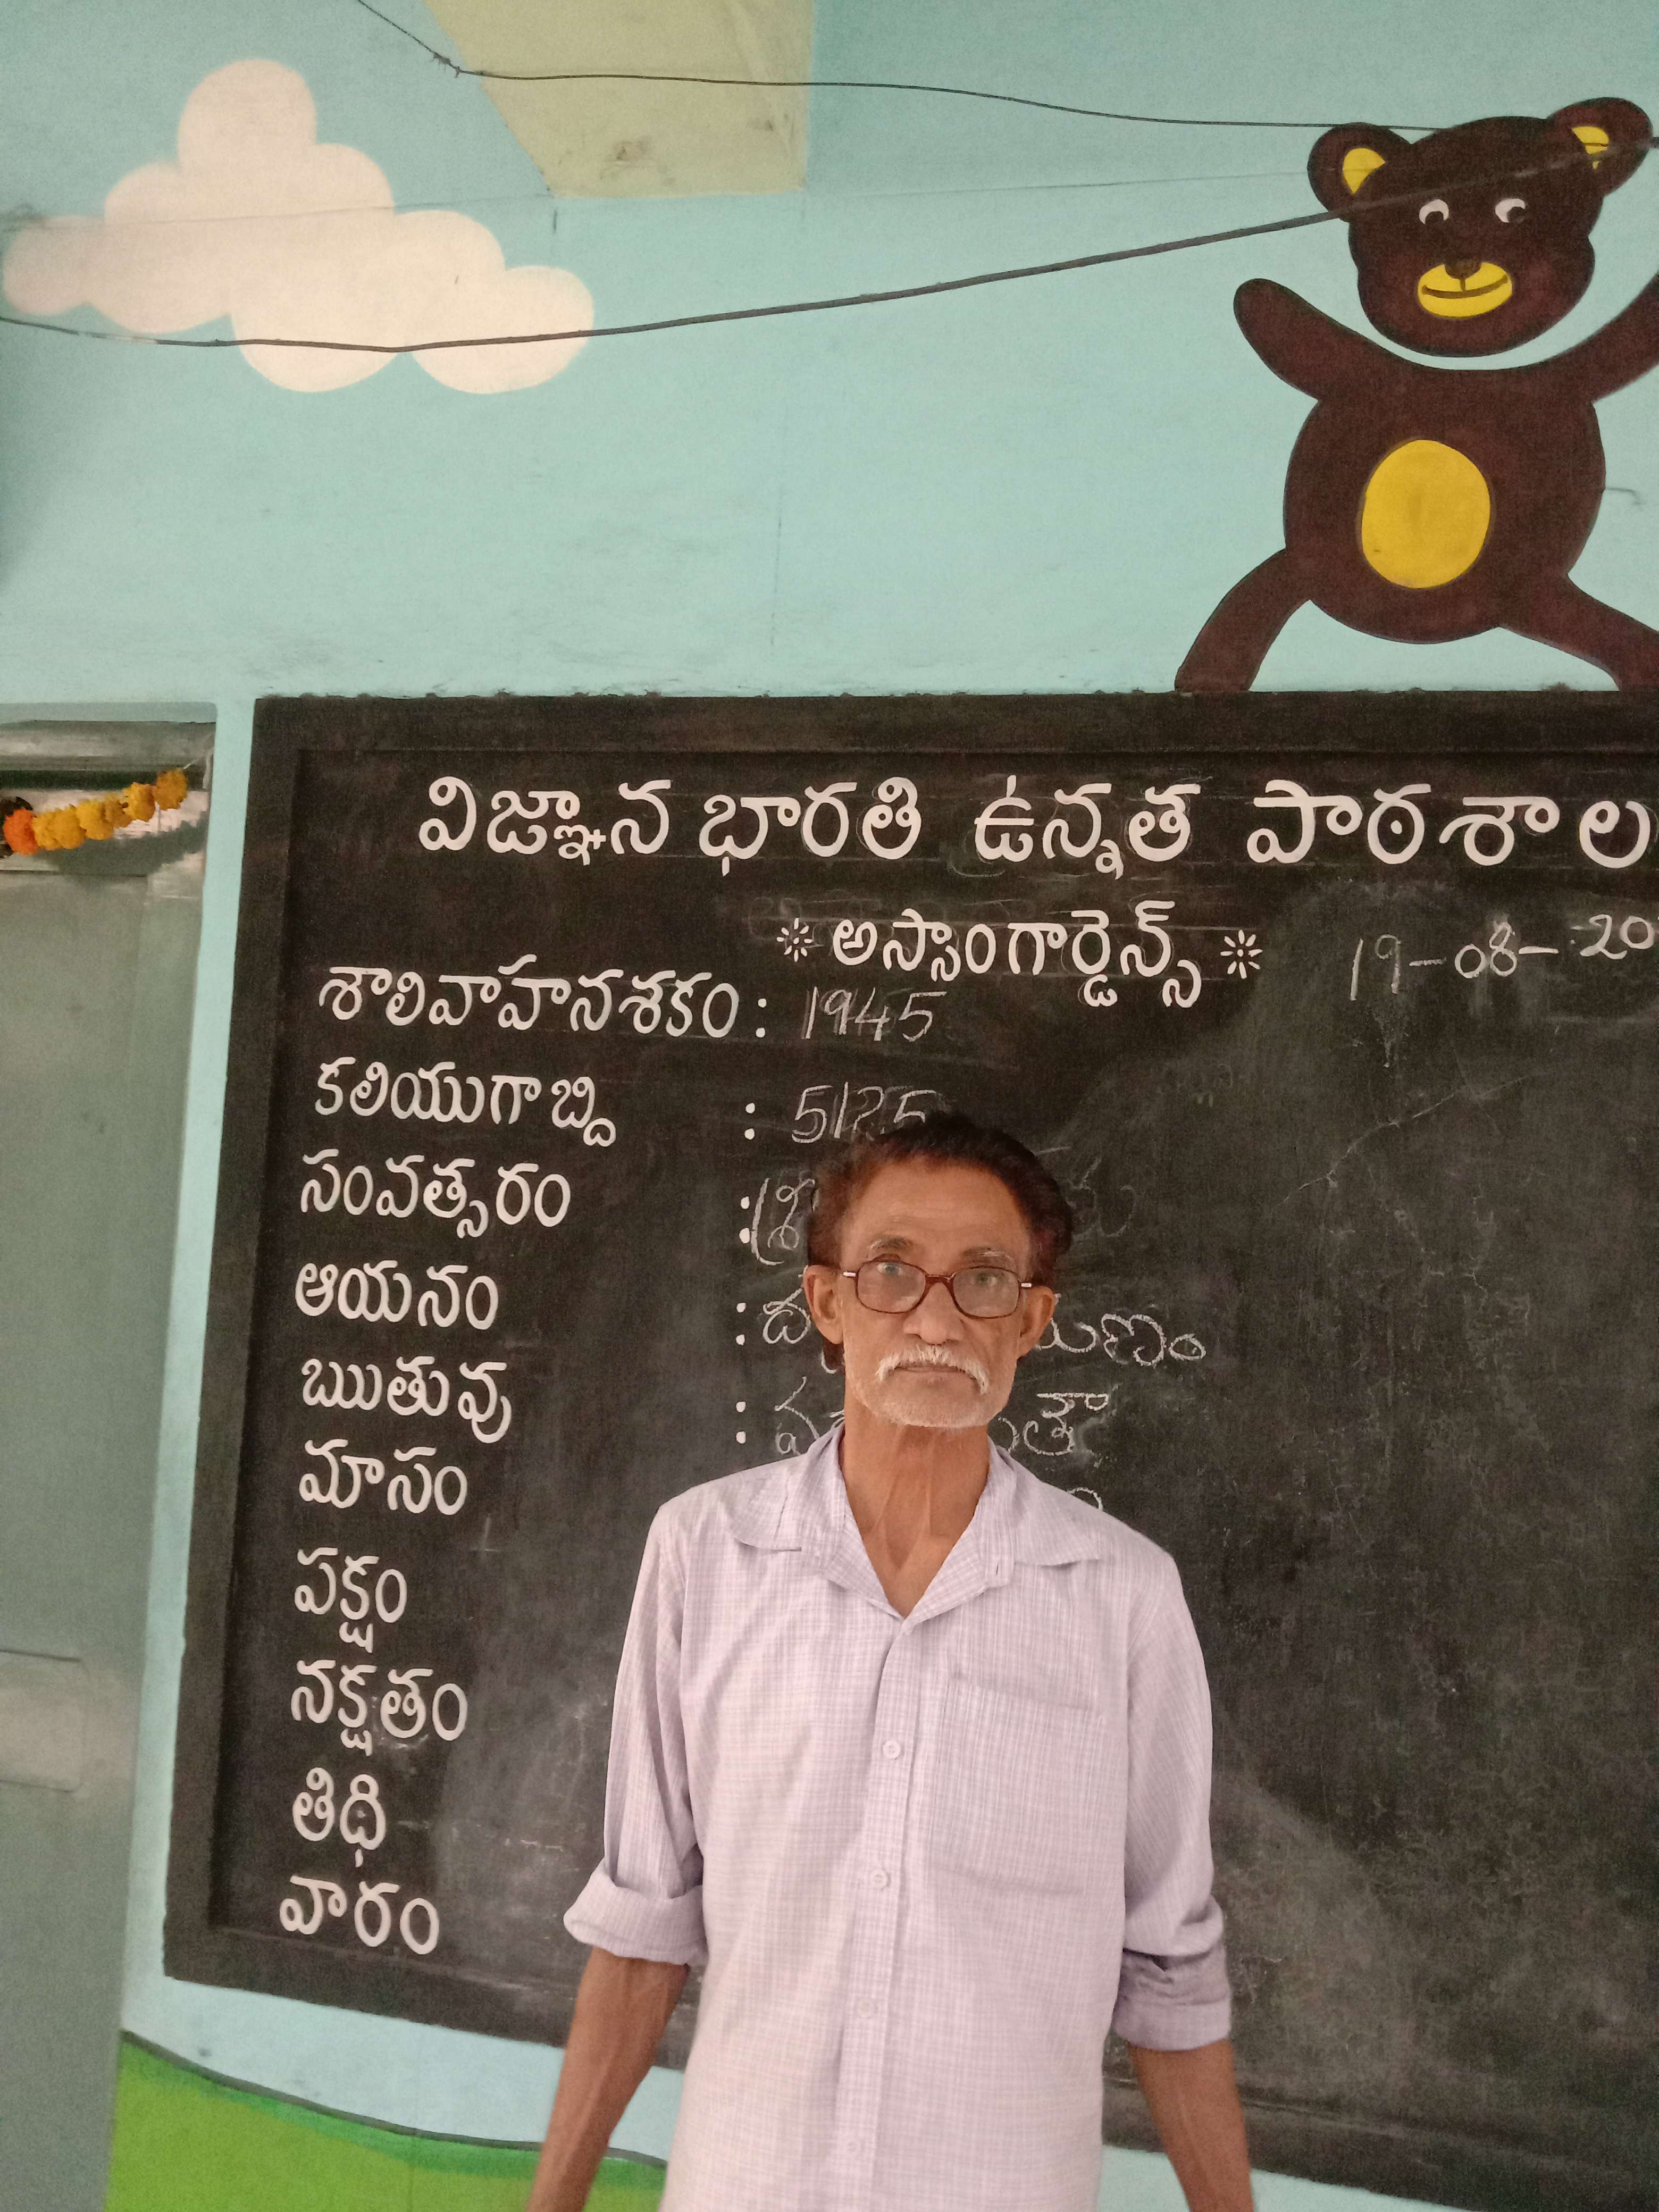 విజ్ఞాన భారతి ఉన్నత పాఠశాల
* అస్సాంగార్డెన్స్ *
19-08-20
శాలివాహనశకం : 1945
కలియుగాబ్ది : 5125
సంవత్సరం :
ఆయనం :
ఋతువు :
మాసం
పక్షం
నక్షతం
తిథి
వారం